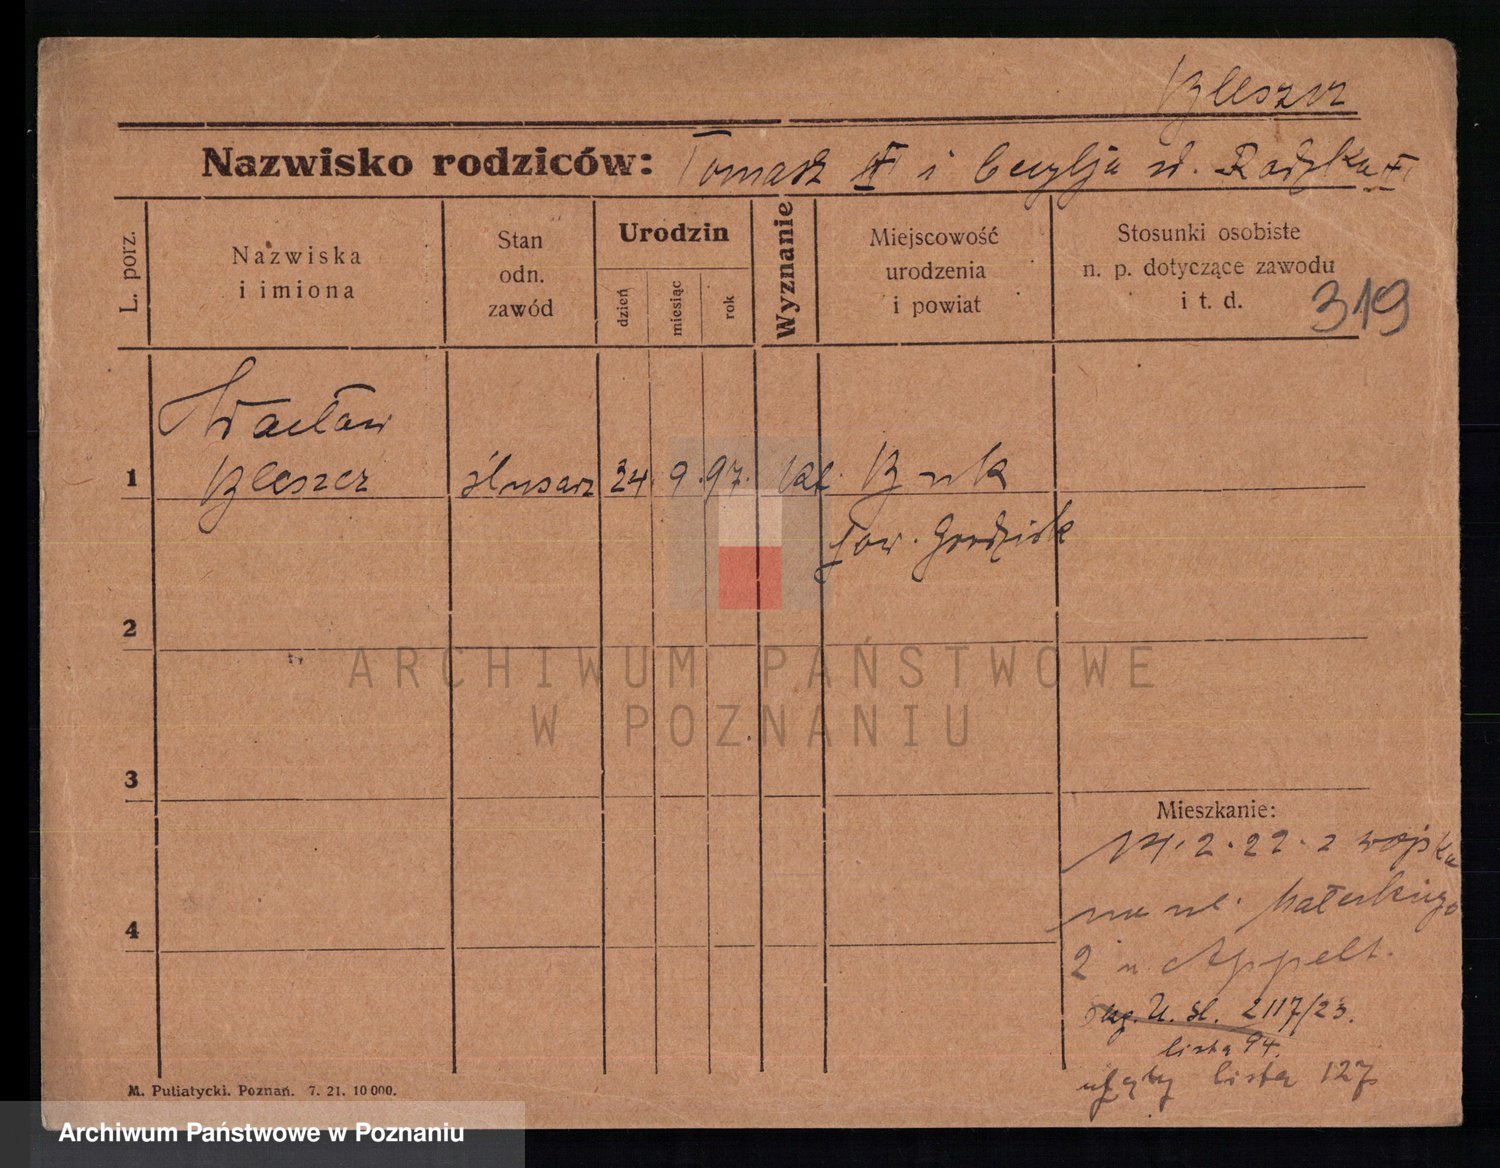 Bleszer
Nazwisko rodziców: Tomasz i Cecylja
L. porz.
Nazwiska i imiona
Stan odn. zawód
Urodzin
dzień
miesiąc
rok
Wyznanie
Miejscowość urodzenia i powiat
Stosunki osobiste n. p. dotyczące zawodu i t. d.
319
Wacław
1 Bleszer ślusarz 24. 9. 97. kat. Buk
pow. Grodzisk
2
ARCHIWUM PAŃSTWOWE
W POZNANIU
3
Mieszkanie:
14. 2. 22. z wojska
na ul.
4
2 u Appelt.
U. śl. 2117/23.
lista 94.
lista 127
M. Putiatycki. Poznań. 7. 21. 10 000.
Archiwum Państwowe w Poznaniu